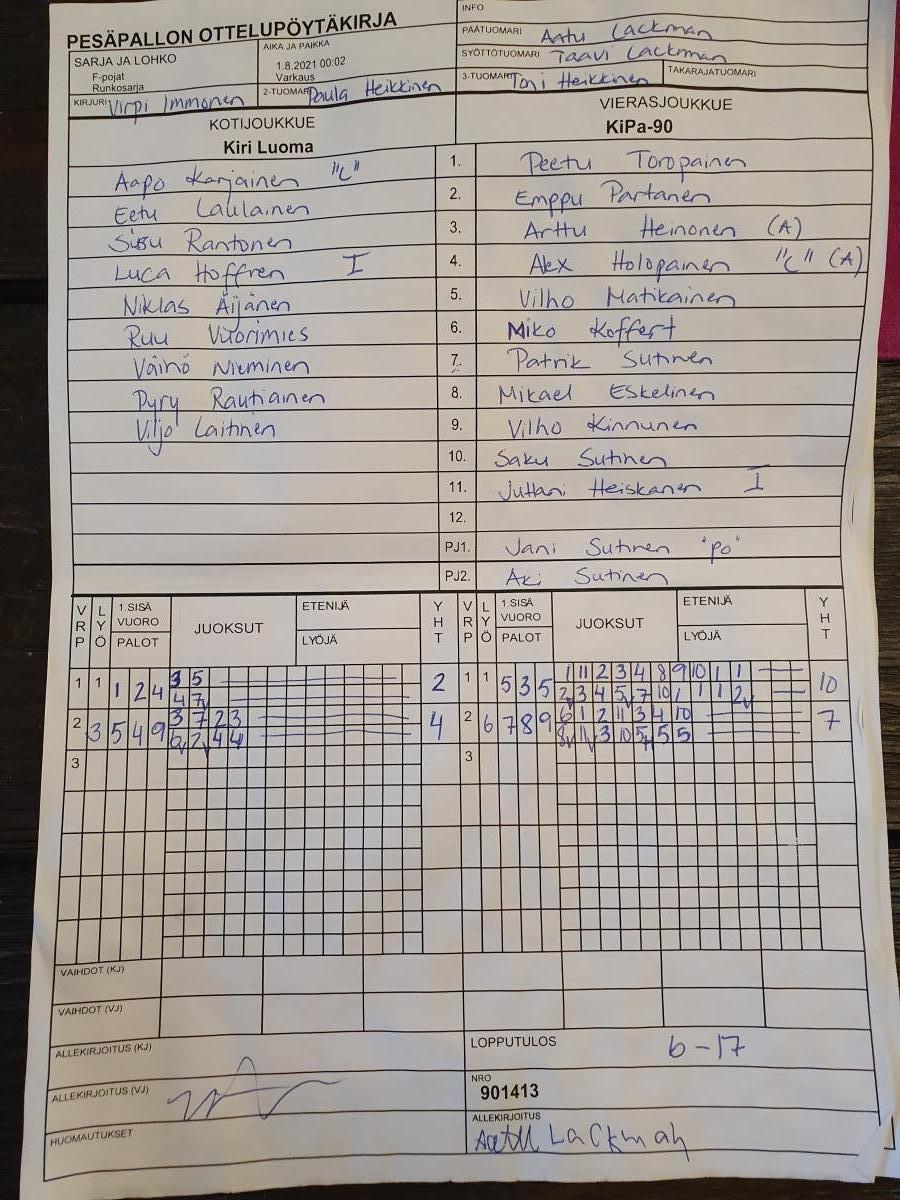 PESÄPALLON OTTELUPÖYTÄKIRJA
INFO
SARJA JA LOHKO
F-pojat
Runkosarja
AIKA JA PAIKKA
1.8.2021 00:02
Varkaus
PÄÄTUOMARI Aatu Lackman
SYÖTTÖTUOMARI Taavi Lackman
KIRJURI Virpi Immonen
2-TUOMARI Paula Heikkinen
3-TUOMARI Toni Heikkinen
TAKARAJATUOMARI
KOTIJOUKKUE
Kiri Luoma
VIERASJOUKKUE
KiPa-90
Aapo Karjainen "C" 1. Peetu Toropainen
Eetu Laulainen 2. Emppu Partanen
Sisu Rantonen 3. Arttu Heinonen (A)
Luca Hoffren I 4. Alex Holopainen "C" (A)
Niklas Äijänen 5. Vilho Matikainen
Ruu Vuorimies 6. Miko Koffert
Väinö Nieminen 7. Patrik Sutinen
Pyry Rautiainen 8. Mikael Eskelinen
Viljo Laitinen 9. Vilho Kinnunen
10. Saku Sutinen
11. Juhani Heiskanen I
12.
PJ1. Jani Sutinen "po"
PJ2. Aki Sutinen
VRP LYÖ 1.SISÄ VUORO PALOT JUOKSUT ETENIJÄ LYÖJÄ YHT VRP LYÖ 1.SISÄ VUORO PALOT JUOKSUT ETENIJÄ LYÖJÄ YHT
1 1 1 2 4 3 5 2 1 1 5 3 5 1 11 2 3 4 8 9 10 1 1 10
4 7 2 3 4 5 7 10 1 1 1 2
2 3 5 4 9 3 7 2 3 4 2 6 7 8 9 6 1 2 11 3 4 10 7
6 2 4 4 8 11 3 10 5 5 5
3 3
VAIHDOT (KJ)
VAIHDOT (VJ)
ALLEKIRJOITUS (KJ)
LOPPUTULOS 6-17
ALLEKIRJOITUS (VJ)
NRO
901413
HUOMAUTUKSET
ALLEKIRJOITUS
Aatu Lackman